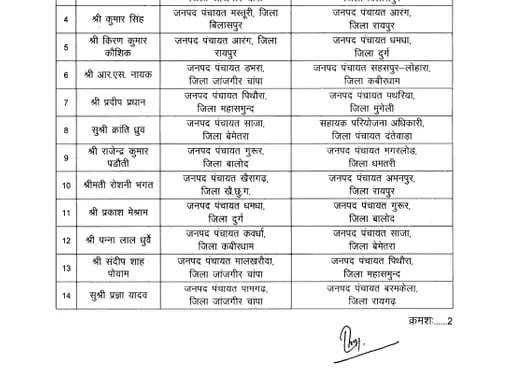 4 श्री कुमार सिंह जनपद पंचायत मस्तूरी, जिला बिलासपुर जनपद पंचायत आरंग, जिला रायपुर
5 श्री किरण कुमार कौशिक जनपद पंचायत आरंग, जिला रायपुर जनपद पंचायत धमधा, जिला दुर्ग
6 श्री आर.एस. नायक जनपद पंचायत डभरा, जिला जांजगीर चांपा जनपद पंचायत सहसपुर–लोहारा, जिला कबीरधाम
7 श्री प्रदीप प्रधान जनपद पंचायत पिथौरा, जिला महासमुन्द जनपद पंचायत पथरिया, जिला मुंगेली
8 सुश्री क्रांति ध्रुव जनपद पंचायत साजा, जिला बेमेतरा सहायक परियोजना अधिकारी, जिला पंचायत दंतेवाड़ा
9 श्री राजेन्द्र कुमार पडौती जनपद पंचायत गुरूर, जिला बालोद जनपद पंचायत मगरलोड, जिला धमतरी
10 श्रीमती रोशनी भगत जनपद पंचायत खैरागढ़, जिला खै.छु.ग. जनपद पंचायत अभनपुर, जिला रायपुर
11 श्री प्रकाश मेश्राम जनपद पंचायत धमधा, जिला दुर्ग जनपद पंचायत गुरूर, जिला बालोद
12 श्री पन्ना लाल धुर्वे जनपद पंचायत कवर्धा, जिला कबीरधाम जनपद पंचायत साजा, जिला बेमेतरा
13 श्री संदीप शाह पोयाम जनपद पंचायत मालखरौदा, जिला जांजगीर चांपा जनपद पंचायत पिथौरा, जिला महासमुन्द
14 सुश्री प्रज्ञा यादव जनपद पंचायत पामगढ़, जिला जांजगीर चांपा जनपद पंचायत बरमकेला, जिला रायगढ़
क्रमशः.....2